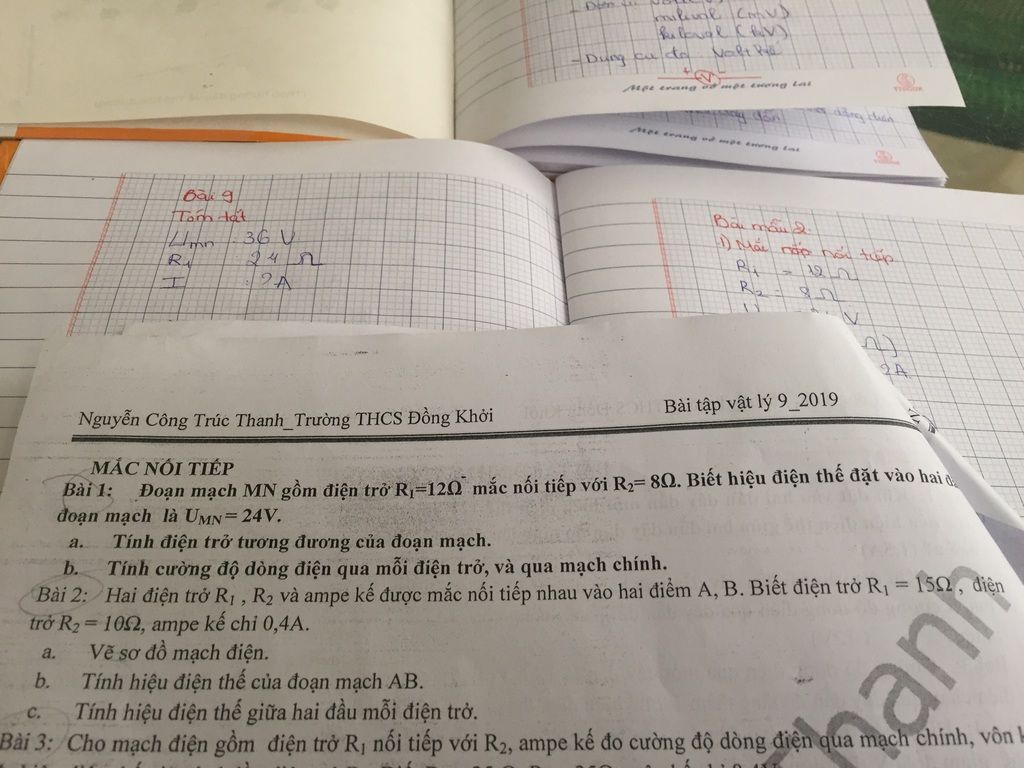 milivol (mV)
kilovol (kV)
- Dụng cụ đo Vôn kế
+ V -
Một trang vở một tương lai
Một trang vở một tương lai
Bài 9
Tóm tắt
Umn : 36 V
R1 : 24 Ω
I : ? A
Bài mẫu 2
1) Mắc nối tiếp
R1 = 12 Ω
R2 = 8 Ω
V
Ω)
2A
Nguyễn Công Trúc Thanh_Trường THCS Đồng Khởi Bài tập vật lý 9_2019
MẮC NỐI TIẾP
Bài 1: Đoạn mạch MN gồm điện trở R1=12Ω mắc nối tiếp với R2= 8Ω. Biết hiệu điện thế đặt vào hai
đoạn mạch là UMN = 24V.
a. Tính điện trở tương đương của đoạn mạch.
b. Tính cường độ dòng điện qua mỗi điện trở, và qua mạch chính.
Bài 2: Hai điện trở R1 , R2 và ampe kế được mắc nối tiếp nhau vào hai điểm A, B. Biết điện trở R1 = 15Ω , điện
trở R2 = 10Ω, ampe kế chỉ 0,4A.
a. Vẽ sơ đồ mạch điện.
b. Tính hiệu điện thế của đoạn mạch AB.
c. Tính hiệu điện thế giữa hai đầu mỗi điện trở.
Bài 3: Cho mạch điện gồm điện trở R1 nối tiếp với R2, ampe kế đo cường độ dòng điện qua mạch chính, vôn
Thanh